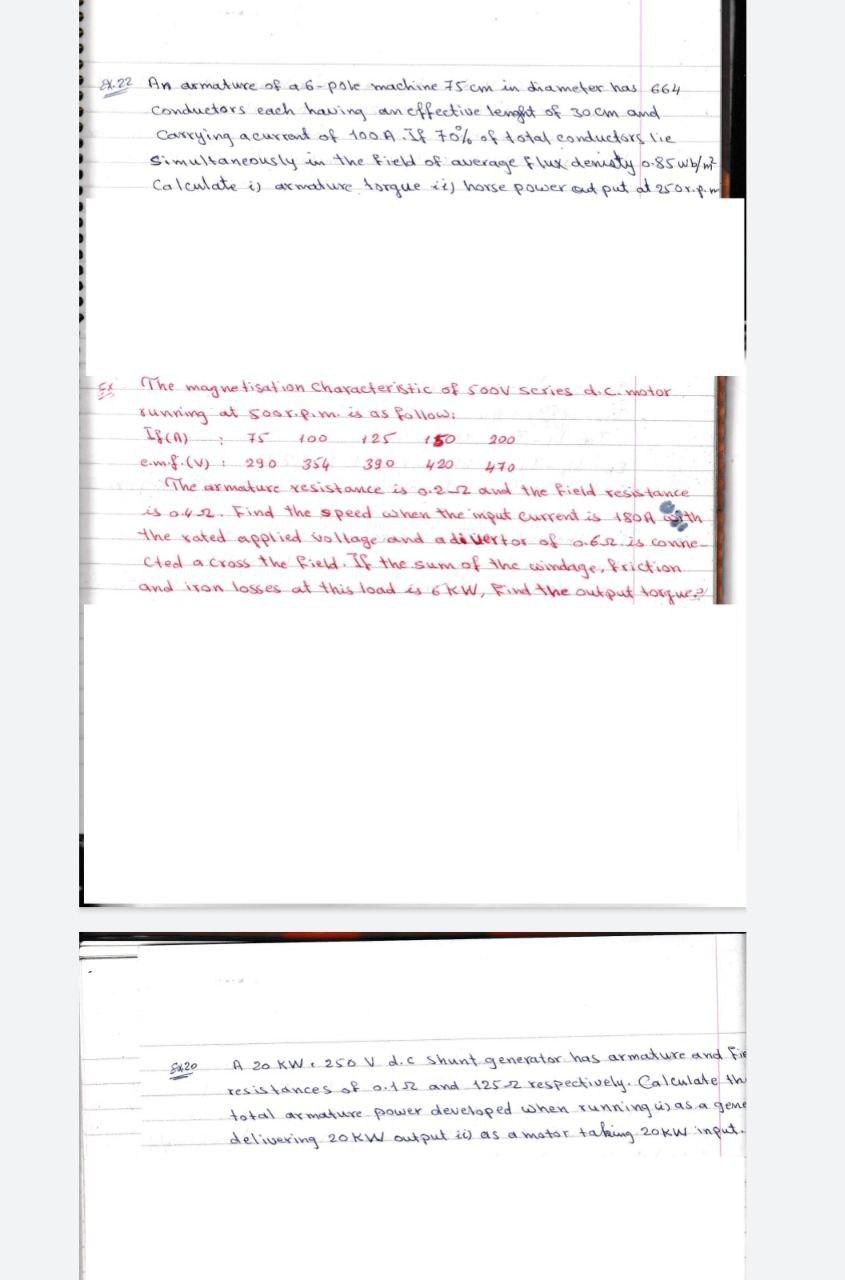 Ex.22 An armature of a 6-pole machine 75 cm in diameter has 664
conductors each having an effective lenght of 30 cm and
Carrying a current of 100 A. If 70% of total conductors lie
Simultaneously in the field of average flux denisty 0.85 wb/m²
Calculate i) armature torque ii) horse power out put at 250 r.p.m
Ex The magnetisation Characteristic of 500V series d.c. motor
running at 500 r.p.m. is as follow:
If(A) : 75 100 125 150 200
e.m.f.(V) : 290 354 390 420 470
The armature resistance is 0.2 Ω and the field resistance
is 0.4 Ω. Find the speed when the input current is 180A with
the rated applied voltage and a divertor of 0.6 Ω is conne-
cted across the field. If the sum of the windage, friction
and iron losses at this load is 6 KW, Find the output torque?
Ex.20 A 20 KW, 250 V d.c shunt generator has armature and Fie
resistances of 0.1 Ω and 125 Ω respectively. Calculate th
total armature power developed when running i) as a gene
delivering 20 KW output ii) as a motor taking 20 KW input.